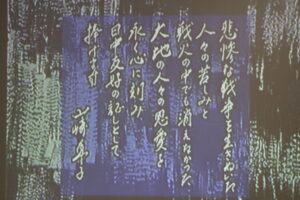 悲惨な戦争を生きぬいた
人々の苦しみと
戦火の中でも消えなかった
大地の人々の恩愛を
永く心に刻み
日中友好の証しとして
捧げます